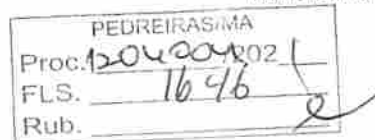 PEDREIRAS/MA
Proc. 1204001/2021
FLS. 1646
Rub.